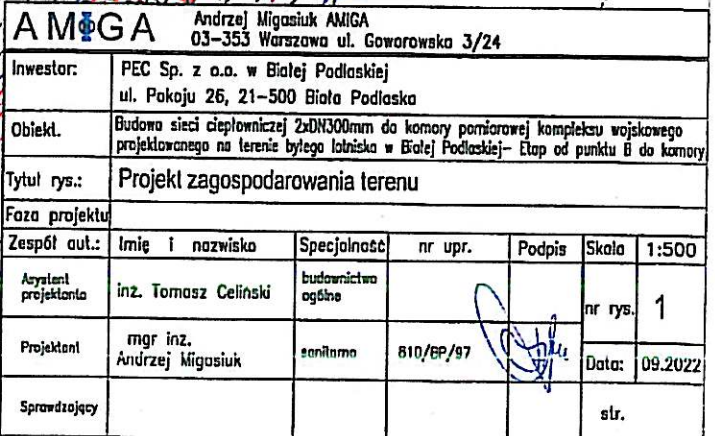 AMIGA
Andrzej Migasiuk AMIGA
03-353 Warszawa ul. Goworowska 3/24
Inwestor:
PEC Sp. z o.o. w Białej Podlaskiej
ul. Pokoju 26, 21-500 Biała Podlaska
Obiekt.
Budowa sieci ciepłowniczej 2xDN300mm do komory pomiarowej kompleksu wojskowego
projektowanego na terenie byłego lotniska w Białej Podlaskiej- Etap od punktu B do komory
Tytuł rys.:
Projekt zagospodarowania terenu
Faza projektu
Zespół aut.: Imię i nazwisko Specjalność nr upr. Podpis Skala 1:500
Asystent
projektanta
inż. Tomasz Celiński
budownictwo
ogólne
nr rys. 1
Projektant
mgr inż.
Andrzej Migasiuk
sanitarna
810/BP/97
Data: 09.2022
Sprawdzający
str.